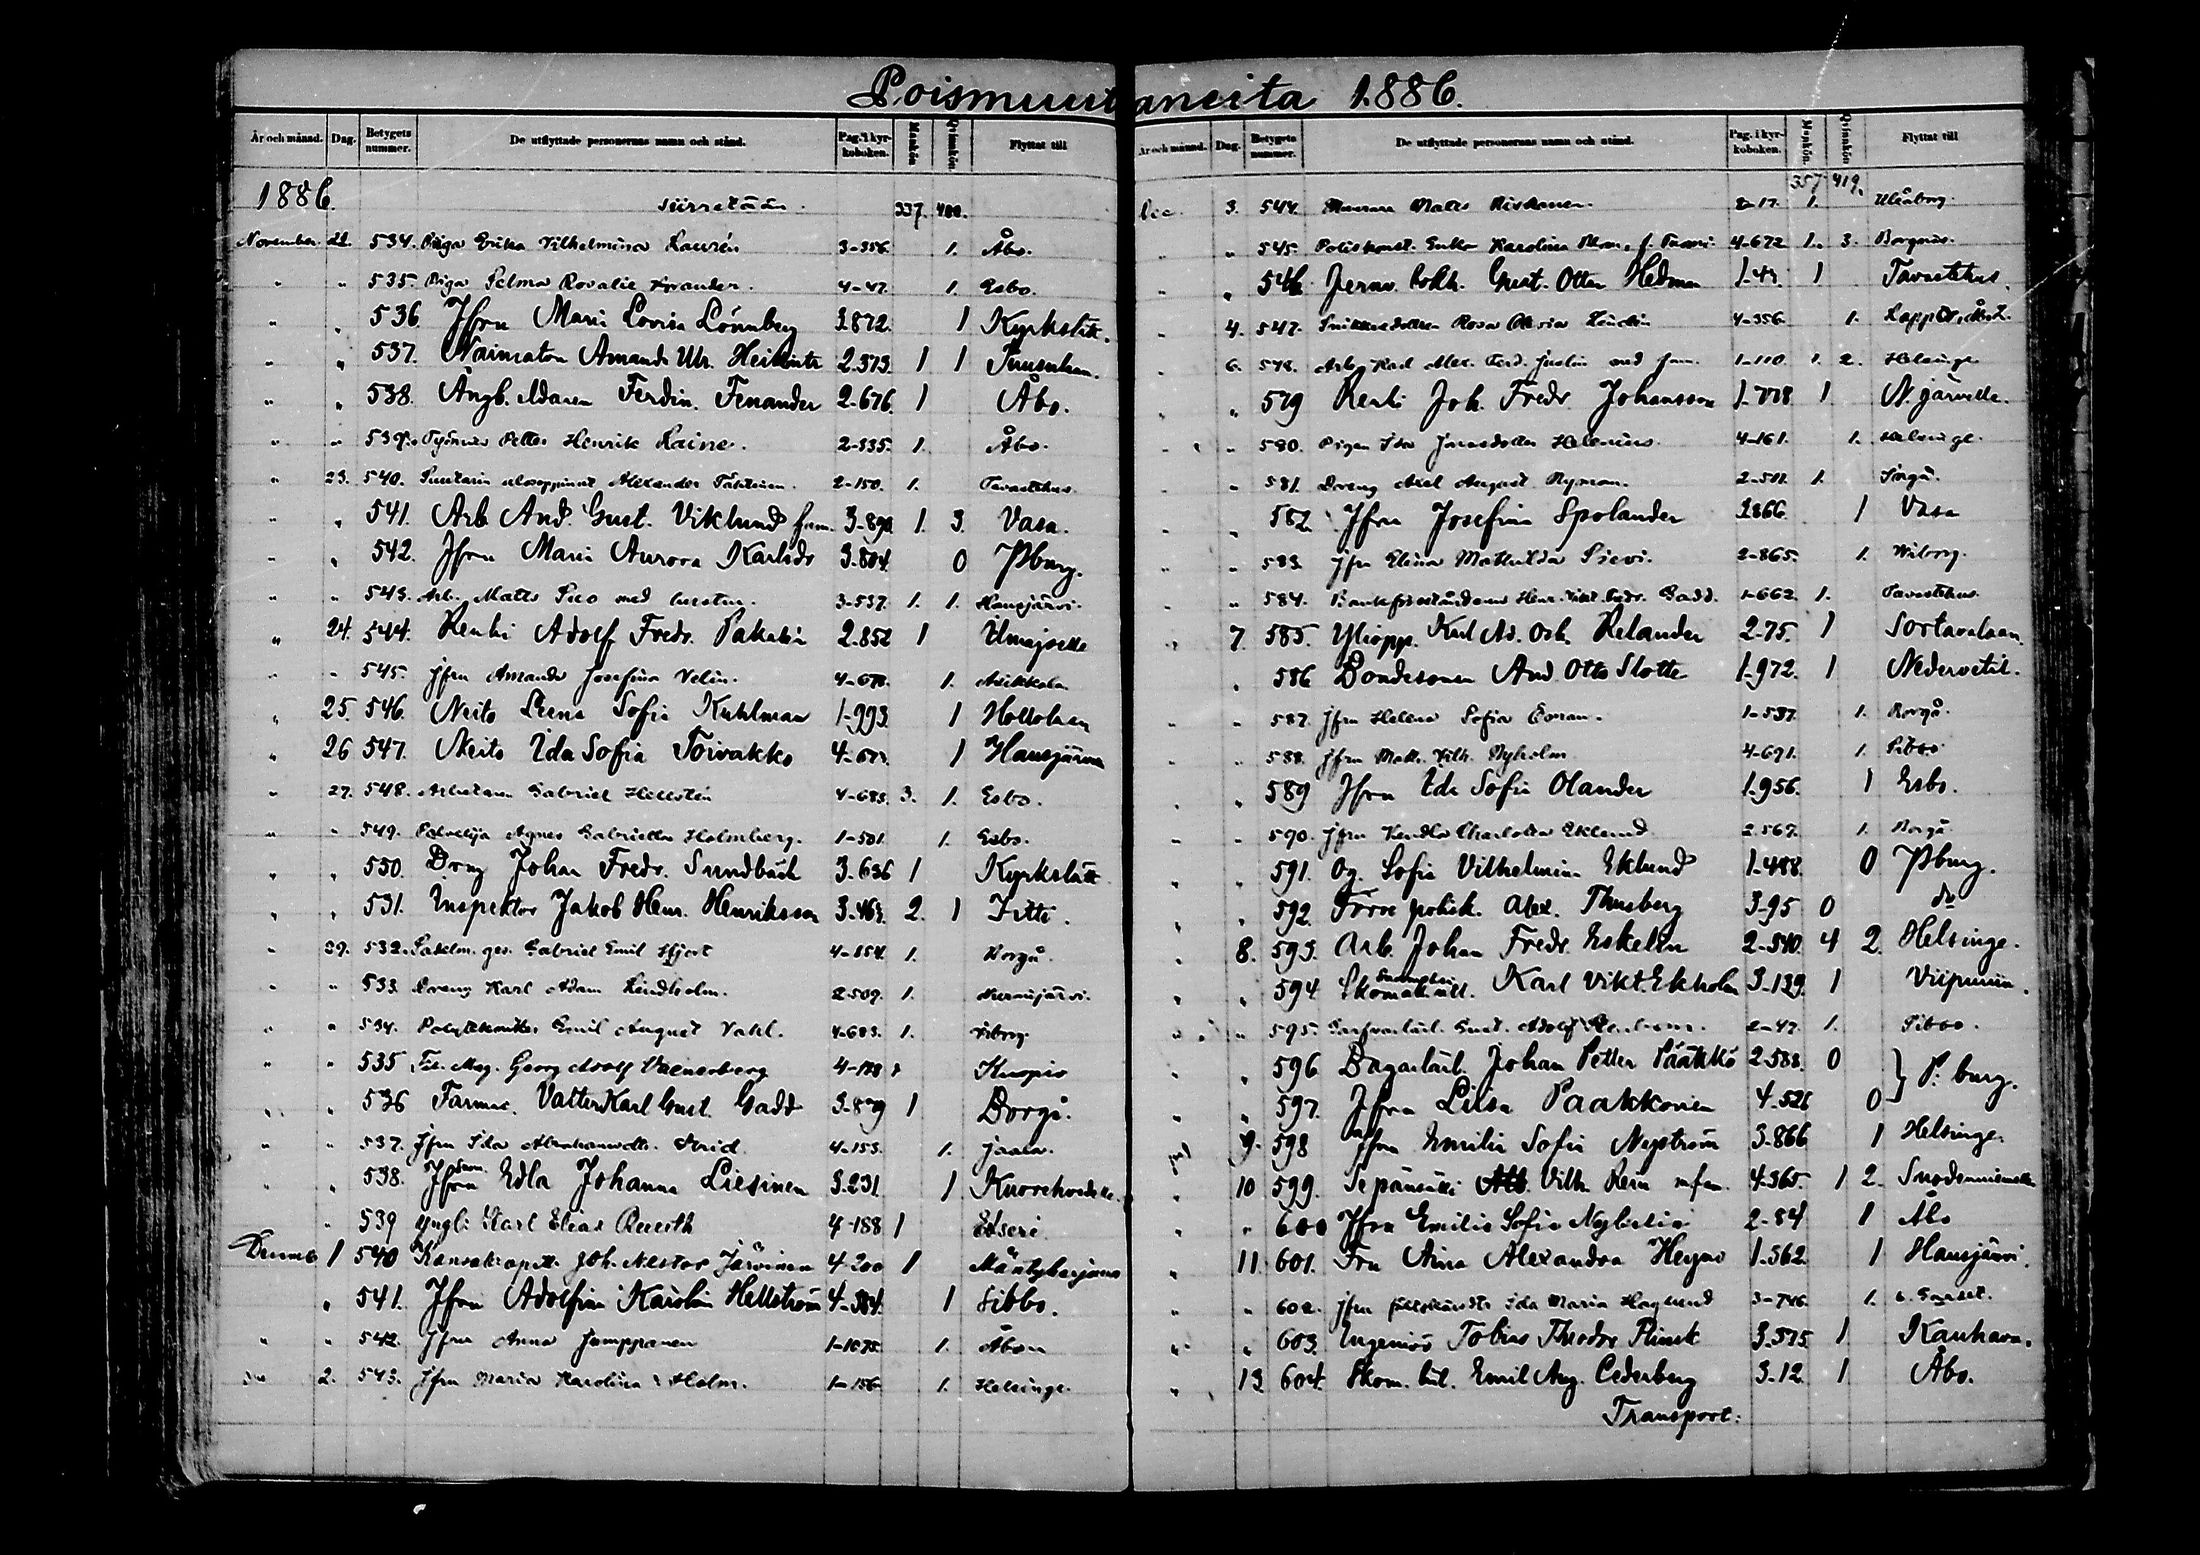 Poismuuttaneita 1886.
År och månad. Dag. Betygets nummer. De utflyttade personernas namn och stånd. Pag. i kyrkoboken. Mankön Qvinkön Flyttat till
1886. siirretään. 337. 400.
November 22. 534. Piga Erika Vilhelmina Laurén 3-356. 1. Åbo.
" " 535. Piga Selma Rosalie 4-47. 1. Esbo.
" " 536. Jfru Maria Lovisa Lönnberg 3872. 1 Kyrkslätt.
" " 537. Naimaton Amanda Ulr. 2.373. 1 1
" " 538. Ångb. eldaren Ferdin. Fenander 2-676. 1 Åbo.
" " 539. Työmies Petter Henrik Laine. 2-535. 1. Åbo.
" 23. 540. Alexander 2-150. 1. Tavastehus
" " 541. Arb. And. Gust. Viklund fam. 3-890 1. 3. Vasa.
" " 542. Jfru Maria Aurora Karlsdr 3-804. 0 Pburg.
" " 543. Arb. Matts med hustru. 3-537. 1. 1. Hausjärvi.
" 24. 544. Renki Adolf Fredr. 2.852 1 Ilmajoelle
" " 545. Jfru Amanda Josefina Velin. 4-678. 1. Asikkala
" 25. 546. Neito Liena Sofia Kuhlman 1-993. 1 Hollolaan
" 26 547. Neito Ida Sofia Toivakko 4-677. 1
" 27. 548. Arbetaren Gabriel Hellstén 4-685. 3. 1. Esbo.
" " 549. Palvelija Agnes Gabriella Holmberg. 1-501. 1. Esbo.
" " 530. Dreng Johan Fredr. Sundbäck 3-636 1 Kyrkslätt
" " 531. Inspektor Jakob Henr. Henriksson 3-463. 2. 1
" 29. 532. Gabriel Emil Hjort 4-154. 1. Borgå.
" " 533. Dreng Karl Adam Lindholm. 2-509. 1. Nurmijärvi.
" " 534. Polyteknikern Emil August Vahl. 4-683. 1. Viborg
" " 535 Fil. Mag. Georg Adolf 4-178 1 Kuopio
" " 536 Farmac. Karl Gust. Gadd 3-879 1 Borgå.
" " 537. Jfru Ida 4-153. 1. Jaala.
" " 538. Jfru Edla Johanna Liesinen 3-231. 1
" 539 Yngl. Karl Elias 4-188 1 Etseri
Decemb 1 540 Joh. Nestor Järvinen 4-200 1 Mäntyharjuun
" 541. Jfru Adolfina Karolina Hellström 4-384. 1 Sibbo.
" " 542. Jfru Anna Jumppanen 1-1075. 1. Åbo
2. 543. Jfru Maria Karolina Holm. 1-156. 1. Helsinge.
År och månad. Dag. Betygets nummer. De utflyttade personernas namn och stånd. Pag. i kyrkoboken. Mankön. Qvinkön Flyttat till
357 419.
Dec. 3. 544. Matts 2-17. 1. Uleåborg.
" " 545. Poliskonst. Enka Karolina 4-672 1. 3. Borgnäs.
" " 546 Gust. Otto Hedman 1-47. 1 Tavastehus.
" 4. 547. Rosa Olivia 4-356. 1.
" 6. 578. Arb. Karl Alex. Ferd. Juslin med fam. 1-110 1. 2. Helsinge
" " 579 Renki Joh. Fredr. Johansson 1-778 1 N. järvelle.
" " 580. Pigan Ida Helenius. 4-161. 1. Helsinge.
" " 581. Dreng Axel August Nyman. 2-501. 1.
" " 582 Jfru Josefina Spolander 2866. 1 Vasa
" " 583. Jfru Elina Mathilda Sievi. 2-865. 1. Wiborg.
" " 584. Gadd. 1-662 1. Tavastehus
" 7. 585. Yliopp. Karl Ad. Osk. Relander 2-75. 1 Sortavalaan
" 586 Bondesonen And. Otto Slotte 1-972. 1 Nedervetil.
" " 587. Jfru Helena Sofia 1-537. 1. Borgå.
" " 588. Jfru Math. Vilh. Nyholm 4-691. 1. Sibbo
" " 589 Jfru Ida Sofia Olander 1-956. 1 Esbo.
" " 590. Jfru Hendla Charlotta Eklund 2.567. 1. Borgå
" " 591. Og. Sofia Vilhelmina Eklund 1-488. 0 Pburg.
" " 592. Förre polisk. Alex. Thusberg 3-95 0 do
" 8. 593. Arb. Johan Fredr. Eskelin 2-510. 4 2. Helsinge.
" " 594. Karl Vikt. Ekholm 3-139. 1 Viipuriin.
" " 595. Gust. Adolf 2-47. 1. Sibbo.
" " 596 Bagarlärl. Johan Petter Pääkkö 2-588. 0 } P: burg.
" " 597. Jfru Liisa Paakkonen 4-526 0
9. 598 Jfru Emilia Sofia Nyström 3-866 1 Helsinge.
" 10 599. Vilh. Rein m fam. 4-365. 1 2.
" " 600 Jfru Emilia Sofia 2-84 1 Åbo
" 11. 601. Fru Aina Alexandra Heyno 1-362. 1 Hausjärvi.
" " 602. Jfru Ida Maria Haglund 3-746. 1.
" " 603. Ingeniör Tobias Theodor 3.575. 1 Kauhava.
" 13 604. Skom. lärl. Emil Aug. Cederberg 3-12. 1 Åbo.
Transport: